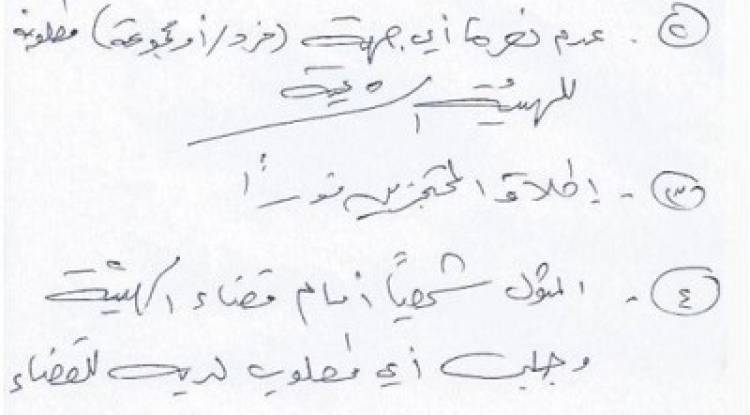 ٢ - عدم نصرها أي جهة (فرد/أو مجموعة) مطلوبة
للهيئة الشرعية
٣ - إطلاق المحتجزين فوراً
٤ - المثول شخصياً أمام قضاء الهيئة
وجلب أي مطلوب لديه للقضاء